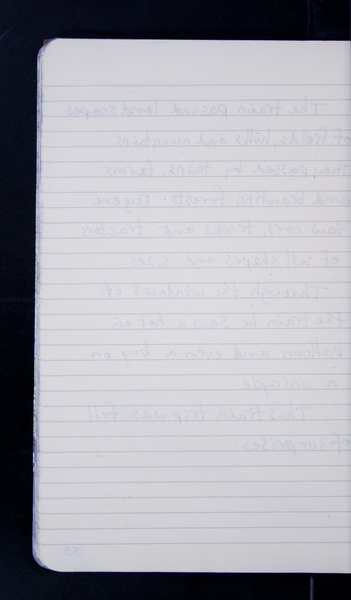 The train passed landscapes
of fields, hills and mountains.
they passed by towns, farms
and beautiful forests. Eugene
saw cars, trucks and tractors
of all shapes and sizes.
Through the windows of
the train he saw a hot air
balloon and even a boy on
a unicycle.
This train trip was full
of surprises.